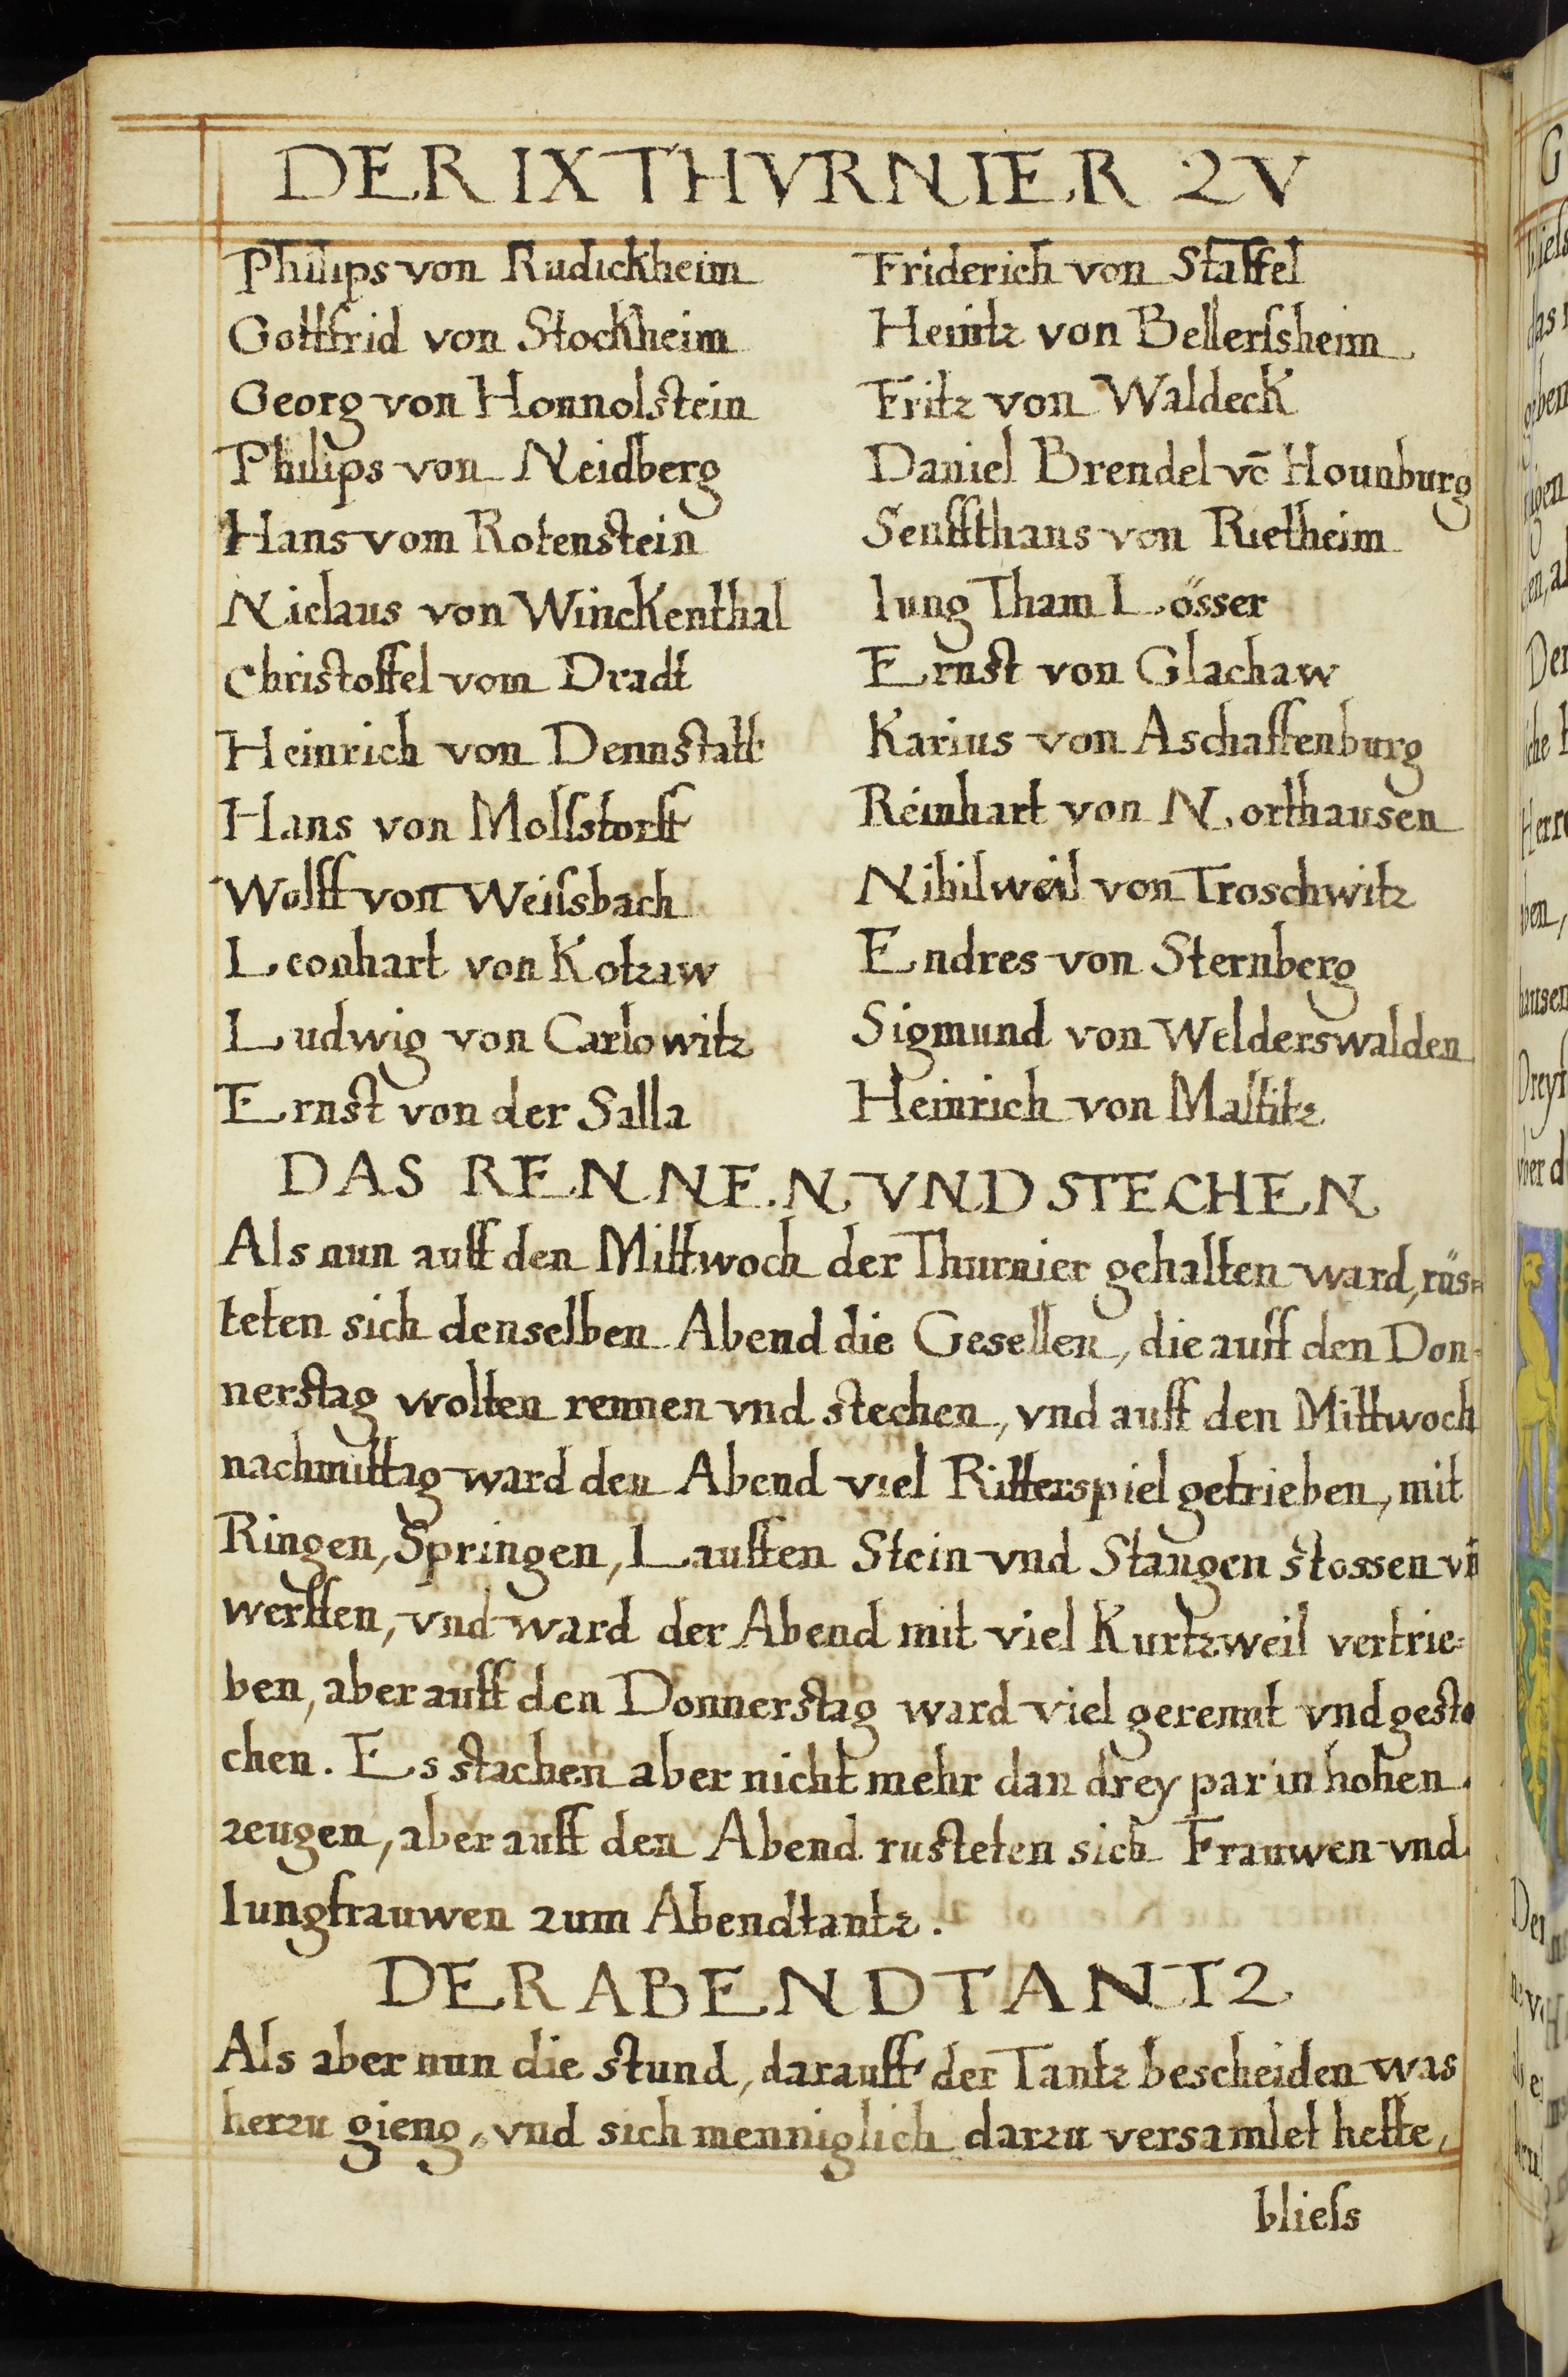 DER IX THVRNIER ZV
Philips von Rudickheim
Gottfrid von Stockheim
Georg von Honnolstein
Philips von Neidberg
Hans vom Rotenstein
Niclaus von Winckenthal
Christoffel vom Dradt
Heinrich von Dennstatt
Hans von Molſstorff
Wolff von Weiſsbach
Leonhart von Kotzaw
Ludwig von Carlowitz
Ernst von der Salla
Friderich von Staffel
Heintz von Bellerſsheim
Fritz von Waldeck
Daniel Brendel vō Hounburg
Seuffthans von Rietheim
Iung Tham Lösser
Ernst von Glachaw
Karius von Aschaffenburg
Reinhart von Northausen
Nihilweil von Troschwitz
Endres von Sternberg
Sigmund von Welderswalden
Heinrich von Maltitz
DAS RENNEN VND STECHEN
Als nun auff den Mittwoch der Thurnier gehalten ward, rüs=
teten sich denselben Abend die Gesellen, die auff den Don=
nerstag wolten rennen vnd stechen, vnd auff den Mittwoch
nachmittag ward den Abend viel Ritterspiel getrieben, mit
Ringen, Springen, Lauffen Stein vnd Stangen stossen vn̄
werffen, vnd ward der Abend mit viel Kurtzweil vertrie=
ben, aber auff den Donnerstag ward viel gerennt vnd gesto
chen. Es stachen aber nicht mehr dan drey par in hohen
zeugen, aber auff den Abend rusteten sich Frauwen vnd
Iungfrauwen zum Abendtantz.
DER ABENDTANTZ
Als aber nun die stund, darauff der Tantz bescheiden was
herzu gieng, vnd sich menniglich darzu versamlet hette,
blieſs